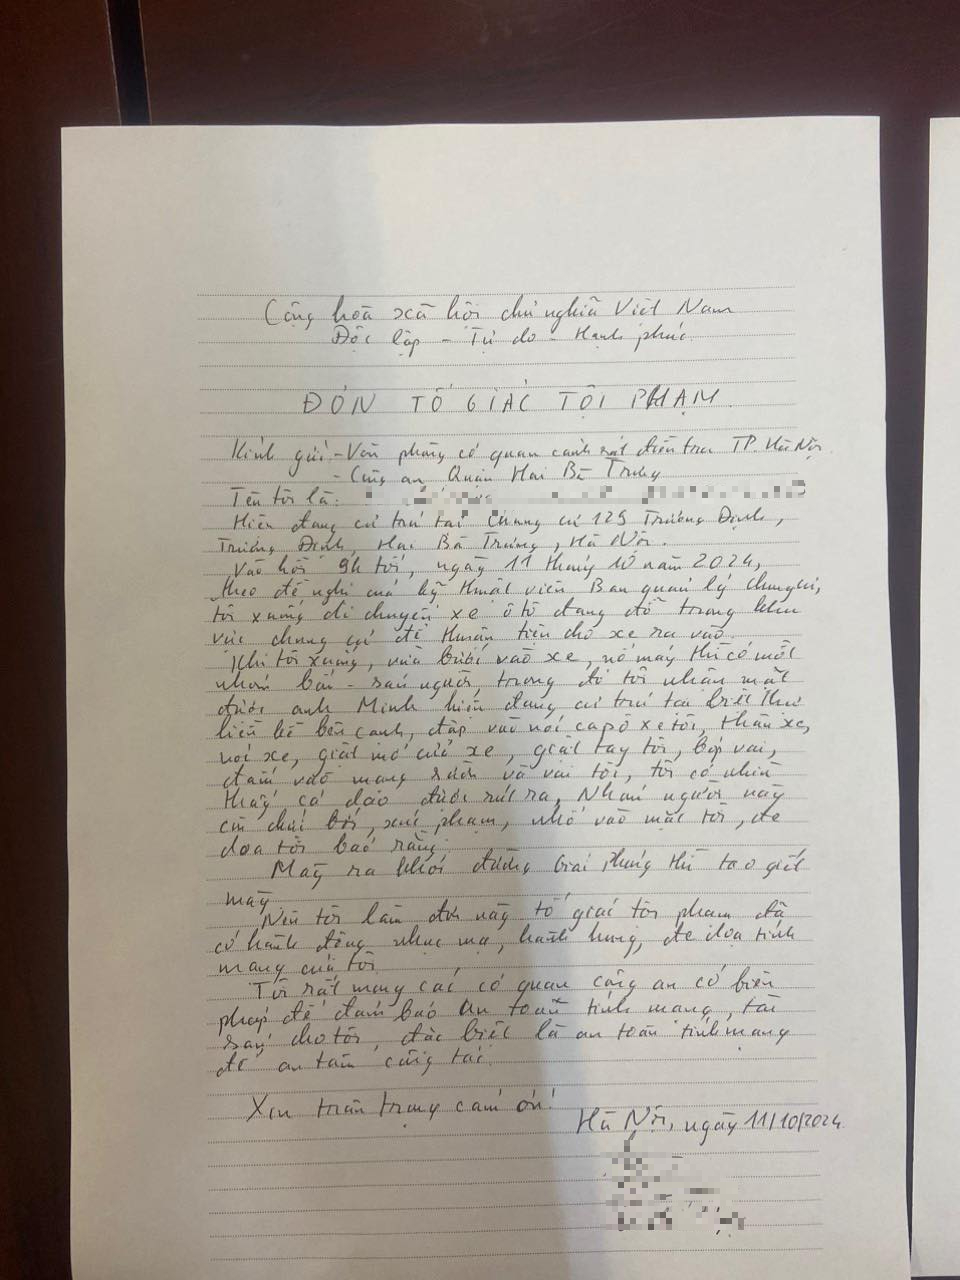 Cộng hoà xã hội chủ nghĩa Việt Nam
Độc lập - Tự do - Hạnh phúc
ĐƠN TỐ GIÁC TỘI PHẠM
Kính gửi - Văn phòng cơ quan cảnh sát điều tra TP. Hà Nội
- Công an Quận Hai Bà Trưng
Tên tôi là:
Hiện đang cư trú tại Chung cư 129 Trương Định,
Trương Định, Hai Bà Trưng, Hà Nội.
Vào hồi 9h tối, ngày 11 tháng 10 năm 2024,
theo đề nghị của kỹ thuật viên Ban quản lý chung cư,
tôi xuống di chuyển xe ô tô đang đỗ trong khu
vực chung cư để thuận tiện cho xe ra vào.
Khi tôi xuống, vừa bước vào xe, nổ máy thì có một
nhóm bốn - sáu người, trong đó tôi nhận mặt
được anh Minh hiện đang cư trú tại biệt thự
liền kề bên cạnh, đập vào nắp capô xe tôi, thân xe,
nóc xe, giật mở cửa xe, giật tay tôi, bóp vai,
đấm vào mạng sườn và vai tôi, tôi có nhìn
thấy cả dao được rút ra, Nhóm người này
còn chửi bới, xúc phạm, nhổ vào mặt tôi, đe
doạ tôi bảo rằng:
Mày ra khỏi đường Giải Phóng thì tao giết
mày
Nên tôi làm đơn này tố giác tội phạm đã
có hành động nhục mạ, hành hung, đe doạ tính
mạng của tôi
Tôi rất mong các cơ quan công an có biện
pháp để đảm bảo an toàn tính mạng, tài
sản cho tôi, đặc biệt là an toàn tính mạng
để an tâm công tác.
Xin trân trọng cảm ơn!
Hà Nội, ngày 11/10/2024